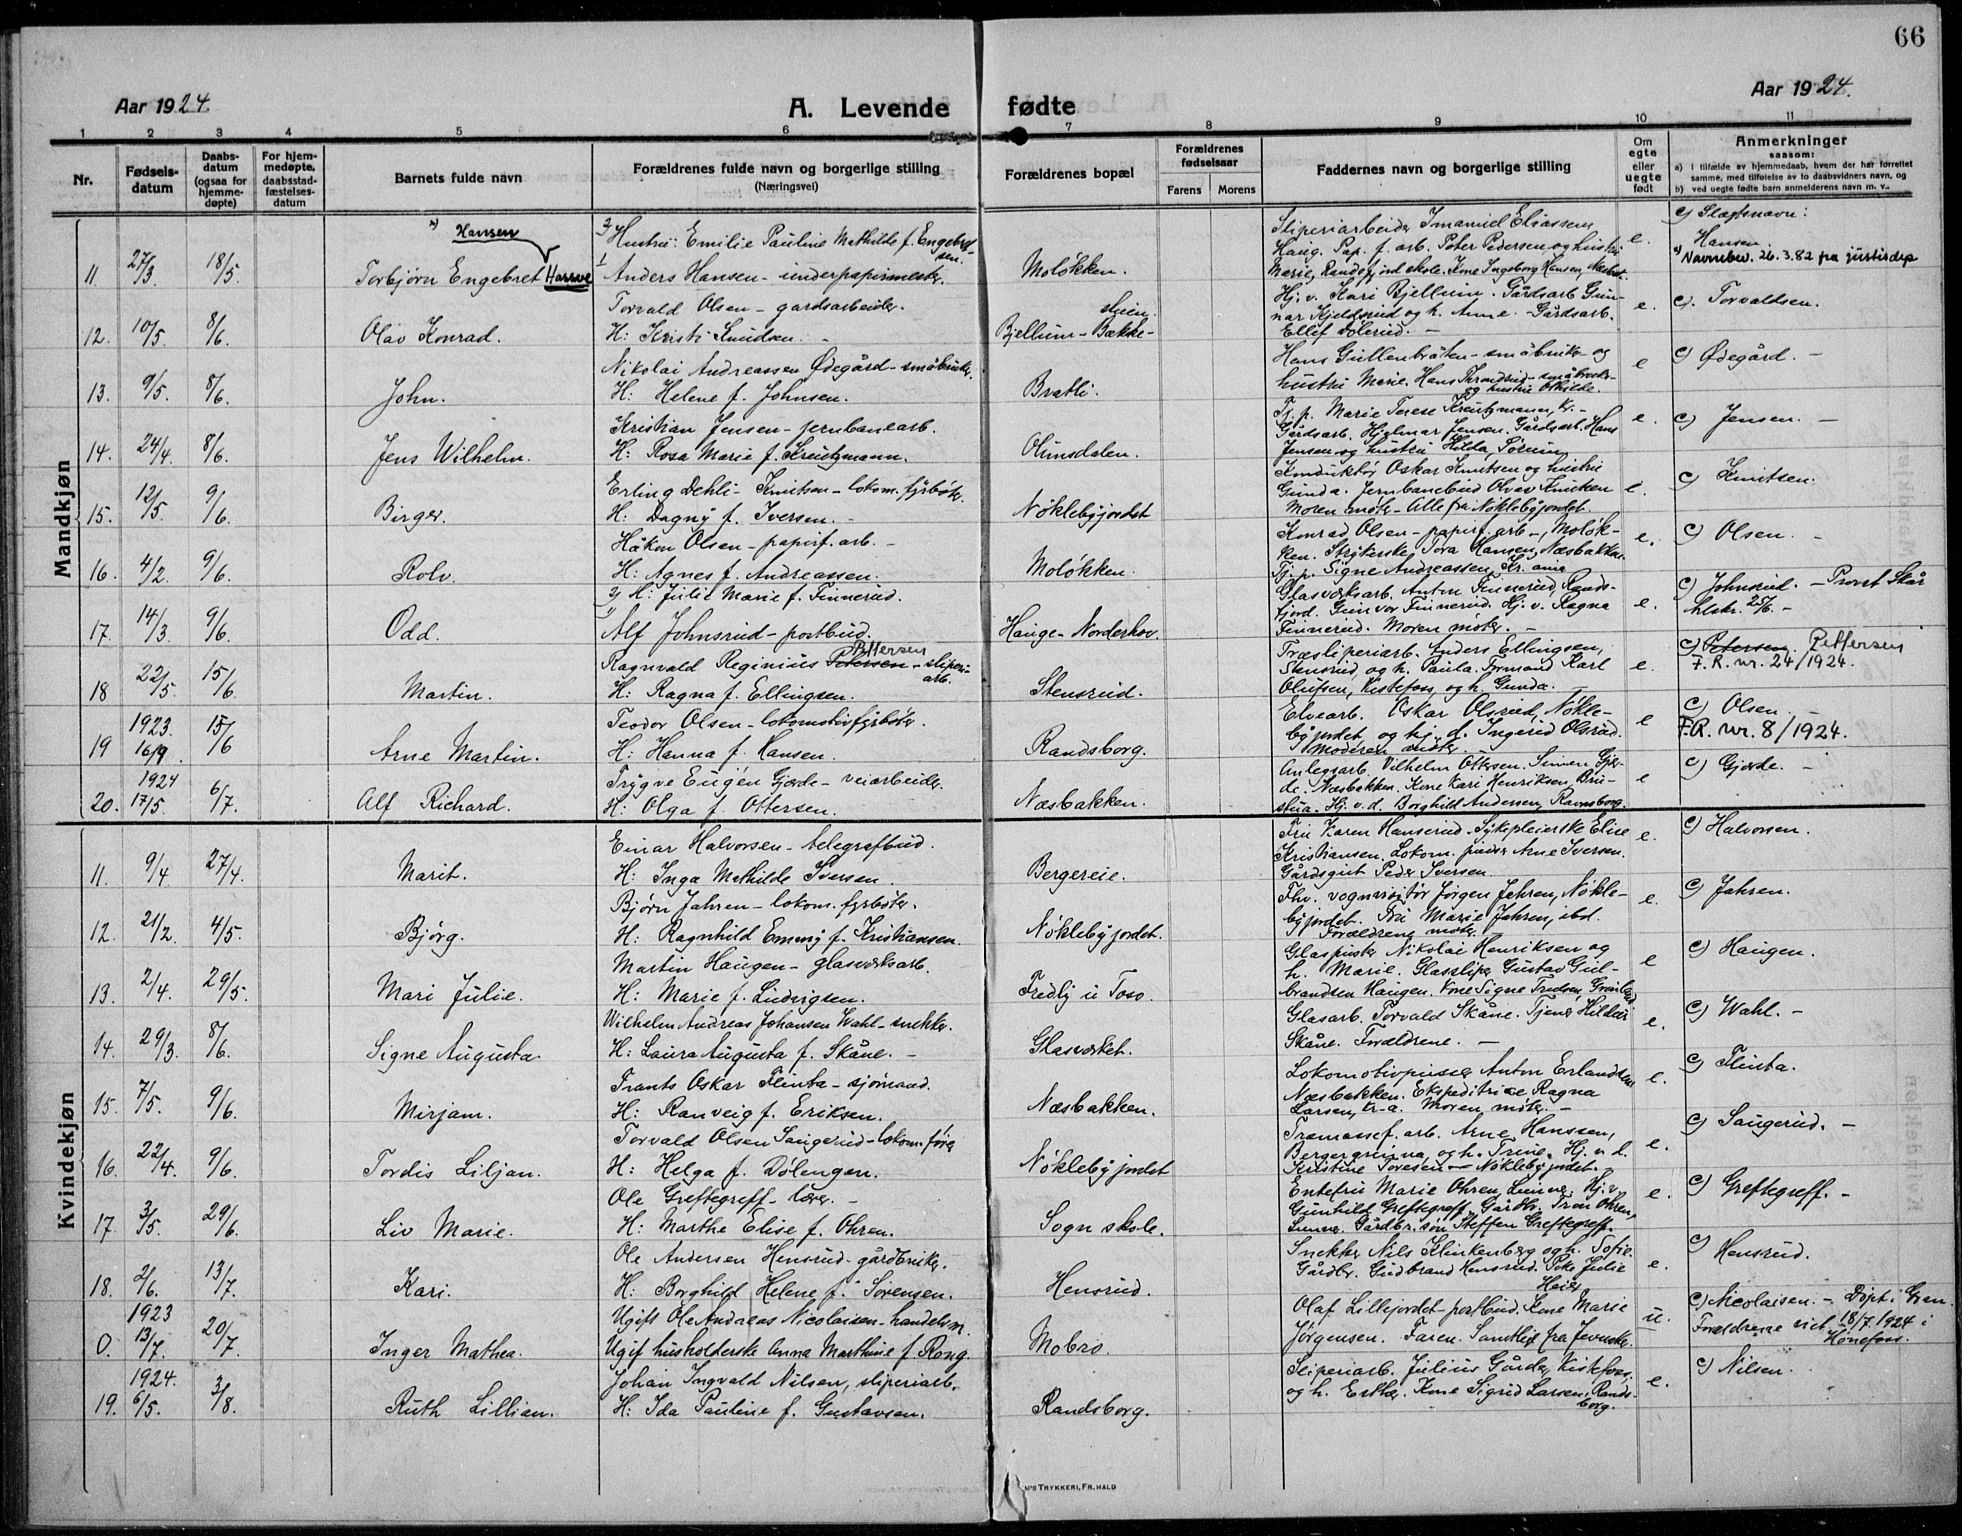 66
Aar 1924.
A. Levende fødte
Aar 1924.
1 2 3 4 5 6 7 8 9 10 11
Nr.
Fødsels-
datum
Daabs-
datum
(ogsaa for
hjemme-
døpte)
For hjem-
medøpte,
daabsstad-
fæstelses-
datum
Barnets fulde navn
Forældrenes fulde navn og borgerlige stilling
(Næringsvei)
Forældrenes bopæl
Forældrenes
fødselsaar
Farens Morens
Faddernes navn og borgerlige stilling
Om
egte
eller
uegte
født
Anmerkninger
saasom:
a) i tilfælde av hjemmedaab, hvem der har forrettet
samme, med tilføielse av to daabsvidners navn, og
b) ved uegte fødte barn anmelderens navn m. v..
Mandkjøn
11. 27/3 18/5
Hansen
Torbjørn Engebret
2) Hustru: Emilie Pauline Mathilde f. Engebret-
sen.
1 Anders Hansen - underpapirmester.
Moløkken.
Sliperiarbeider Imanuel Eliassen,
Haug. Pap. f. arb. Peter Pedersen og hustru
Marie, Randsfjord skole. Kone Ingeborg Hansen,
e.
c) Slægtsnavn:
Hansen
Navnebev. 26.3.82 fra justisdep
12. 10/5 8/6
Olav Konrad.
Torvald Olsen - gardsarbeider.
H: Kristi Knudsen. -
Bjellum-Bække-
Hj. v. Kari Bjellum. Gårdsarb. Gun-
nar Kjeldsrud og h. Anne. Gårdsarb.
Ellef Dølerud. -
e.
c) Torvaldsen.
13. 9/5 8/6
John.
Nikolai Andreassen Ødegård - småbruker.
H: Helene f. Johnsen.
Bratli.
Hans Gullenbråten - småbruker og
hustru Marie. Hans Trondsrud - småbruker
og hustru Othilde.
e
c) Ødegård. -
14. 24/4 8/6
Jens Wilhelm.
Kristian Jensen - jernbanearb.
H: Rosa Marie f. Kreutzmann.
Olimsdalen.
Tj. p. Marie Terese Kreutzmann, Kr. -
Gårdsarb. Hjelmar Jensen. Gårdsarb. Hans
Jensen og hustru Hilda,
e.
c) Jensen. -
15. 12/5 9/6
Birger.
Erling Dehli-Knutsen - lokom. fyrbøter.
H: Dagny f. Iversen. -
Nøklebyjordet
Konduktør Oskar Knutsen og hustru
Gunda. Jernbanebud Olav Knutsen
Moren møter - Alle fra Nøklebyjordet.
e.
c) Knutsen.
16. 4/2 9/6
Rolv.
Håkon Olsen - papirf. arb. -
H: Agnes f. Andreassen.
Moløkken.
Konrad Olsen - papirf. arb -, Moløk-
ken. Strykerske Tora Hansen, Næsbakken.
Tj. p. Signe Andreassen, Kr.ania
e.
c) Olsen. -
17. 14/3 9/6
Odd.
2) H: Julie Marie f. Finnerud.
1) Alf Johnsrud - postbud.
Hauge-Norderhov.
Glasverksarb. Anton Finnerud, Rands-
fjord. Gunvor Finnerud. Hj. v. Ragna
Finnerud. Moren møter. -
e.
c) Johnsrud. - Provst Skår
25/6. -
18 22/5 15/6
Martin.
Ragnvald Reginius Petersen Pettersen - sliperi-
arb.
H: Ragna f. Ellingsen.
Stensrud.
Træsliperiarb. Anders Ellingsen,
Stensrud, og h. Paula. Formand Karl
Olufsen, Kistefoss, og h. Gunda. -
e
c) Petersen. Pettersen
F.R. nr. 24/1924.
19 1923 16/9 15/6
Arne Martin.
Teodor Olsen - lokomotivfyrbøter.
H: Hanna f. Hansen.
Randsborg.
Elvearb. Oskar Olsrud, Nøkle-
byjordet og hj. d. Ingerid Olsrud.
Moderen møter.
e
c) Olsen. -
F.R. nr. 8/1924.
20. 1924 17/5 6/7
Alf Richard.
Trygve Eugén Gjerde - veiarbeider.
H: Olga f. Ottersen.
Næsbakken.
Anlegsarb. Vilhelm Ottersen.
Næsbakken. Kone Kari Henriksen,
Hj. v. d. Borghild Andersen, Ravnsborg.
e
c) Gjerde. -
Kvindekjøn
11. 9/4 27/4.
Marit.
Einar Halvorsen - telegrafbud.
H: Inga Mathilde Iversen.
Bergereie.
Fru Karen Hanserud. Sykepleierske Elise
Kristiansen. Lokom. pudser Arne Iversen.
Gårdsgut Peder Iversen
e.
c) Halvorsen.
12. 21/2 4/5.
Bjørg.
Bjørn Jahren - lokom. fyrbøter.
H: Ragnhild Emmy f. Kristiansen.
Nøklebyjordet.
Fhv. vognvisitør Jørgen Jahren, Nøkle-
byjordet. Fru Marie Jahren, ibd.
Forældrene møter.
e.
c) Jahren.
13. 2/4. 29/5.
Mari Julie.
Martin Haugen - glasværksarb.
H: Marie f. Ludvigsen.
Fredly u Toso.
Glaspuster Nikolai Henriksen og
h. Marie. Glassliper Gustav Gul-
brandsen Haugen. Kone Signe
e
c) Haugen.
14. 29/3. 8/6.
Signe Augusta.
Wilhelm Andreas Johansen Wahl - snekker.
H: Laura Augusta f. Skåne. -
Glasværket.
Glasarb. Torvald Skåne. Tjener Hildur
Skåne. Forældrene. -
e.
c) Wahl. -
15. 7/5. 9/6.
Mirjam.
Frants Oskar Flinta - sjømand.
H: Ranveig f. Eriksen.
Næsbakken.
Lokomotivpudser Anton Erlandsen
Næsbakken. Ekspeditrice Ragna
Larsen, Kr-a. Moren møter. -
e.
c) Flinta.
16. 22/4. 9/6.
Tordis Liljan.
Torvald Olsen Saugerud - lokom. fører
H: Helga f. Dølengen.
Nøklebyjordet
Træmassef. arb. Arne Hanssen,
Bergergrinna, og h. Trine. Hj. v. d.
Kristine Toresen - Nøklebyjordet.
e.
c) Saugerud. -
17. 3/5. 29/6.
Liv Marie.
Ole Greftegreff - lærer. -
H: Marthe Elise f. Ohren.
Sogn skole.
Enkefru Marie Ohren, Lunner. Hj. v.
Gunhild Greftegreff. Gårdbr. Tron Ohren,
Lunner. Gårdbr. søn Steffen Greftegreff.
e.
c) Greftegreff. -
18. 2/6. 13/7.
Kari.
Ole Andersen Hensrud - gårdbruker.
H: Borghild Helene f. Sørensen.
Hensrud.
Snekker Nils Klinkenberg og h. Tofie.
Gårdbr. Gudbrand Hensrud. Pike Julie
Heier
e.
c) Hensrud.
0. 1923 13/7. 20/7.
Inger Mathea.
Ugift Ole Andreas Nicolaisen - handelsm.
Ugift husholderske Anna Marthine f. Rong.
Mobro.
Olaf Lillejordet postbud. Kone Marie
Jørgensen. Faren. Samtlige fra Jevnaker.
u.
c) Nicolaisen. - Døpt i Gran.
Forældrene viet 18/7 1924 i
Hønefoss.
19. 1924. 6/5. 3/8.
Ruth Lillian.
Johan Ingvald Nilsen, sliperiarb.
H: Ida Pauline f. Gustavsen.
Randsborg.
Sliperiarb. Julius Gårder, Kistefoss,
og h. Esther. Kone Sigrid Larsen, Rands-
borg.
e.
c) Nilsen.
TRYKKERI, FR.HALD